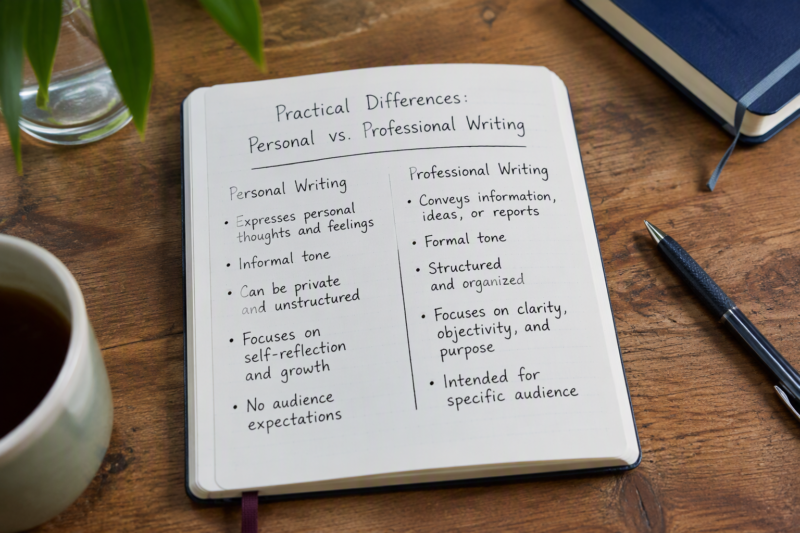 Practical Differences:
Personal vs. Professional Writing
Personal Writing
• Expresses personal
thoughts and feelings
• Informal tone
• Can be private
and unstructured
• Focuses on
self-reflection
and growth
• No audience
expectations
Professional Writing
• Conveys information,
ideas, or reports
• Formal tone
• Structured
and organized
• Focuses on clarity,
objectivity, and
purpose
• Intended for
specific audience